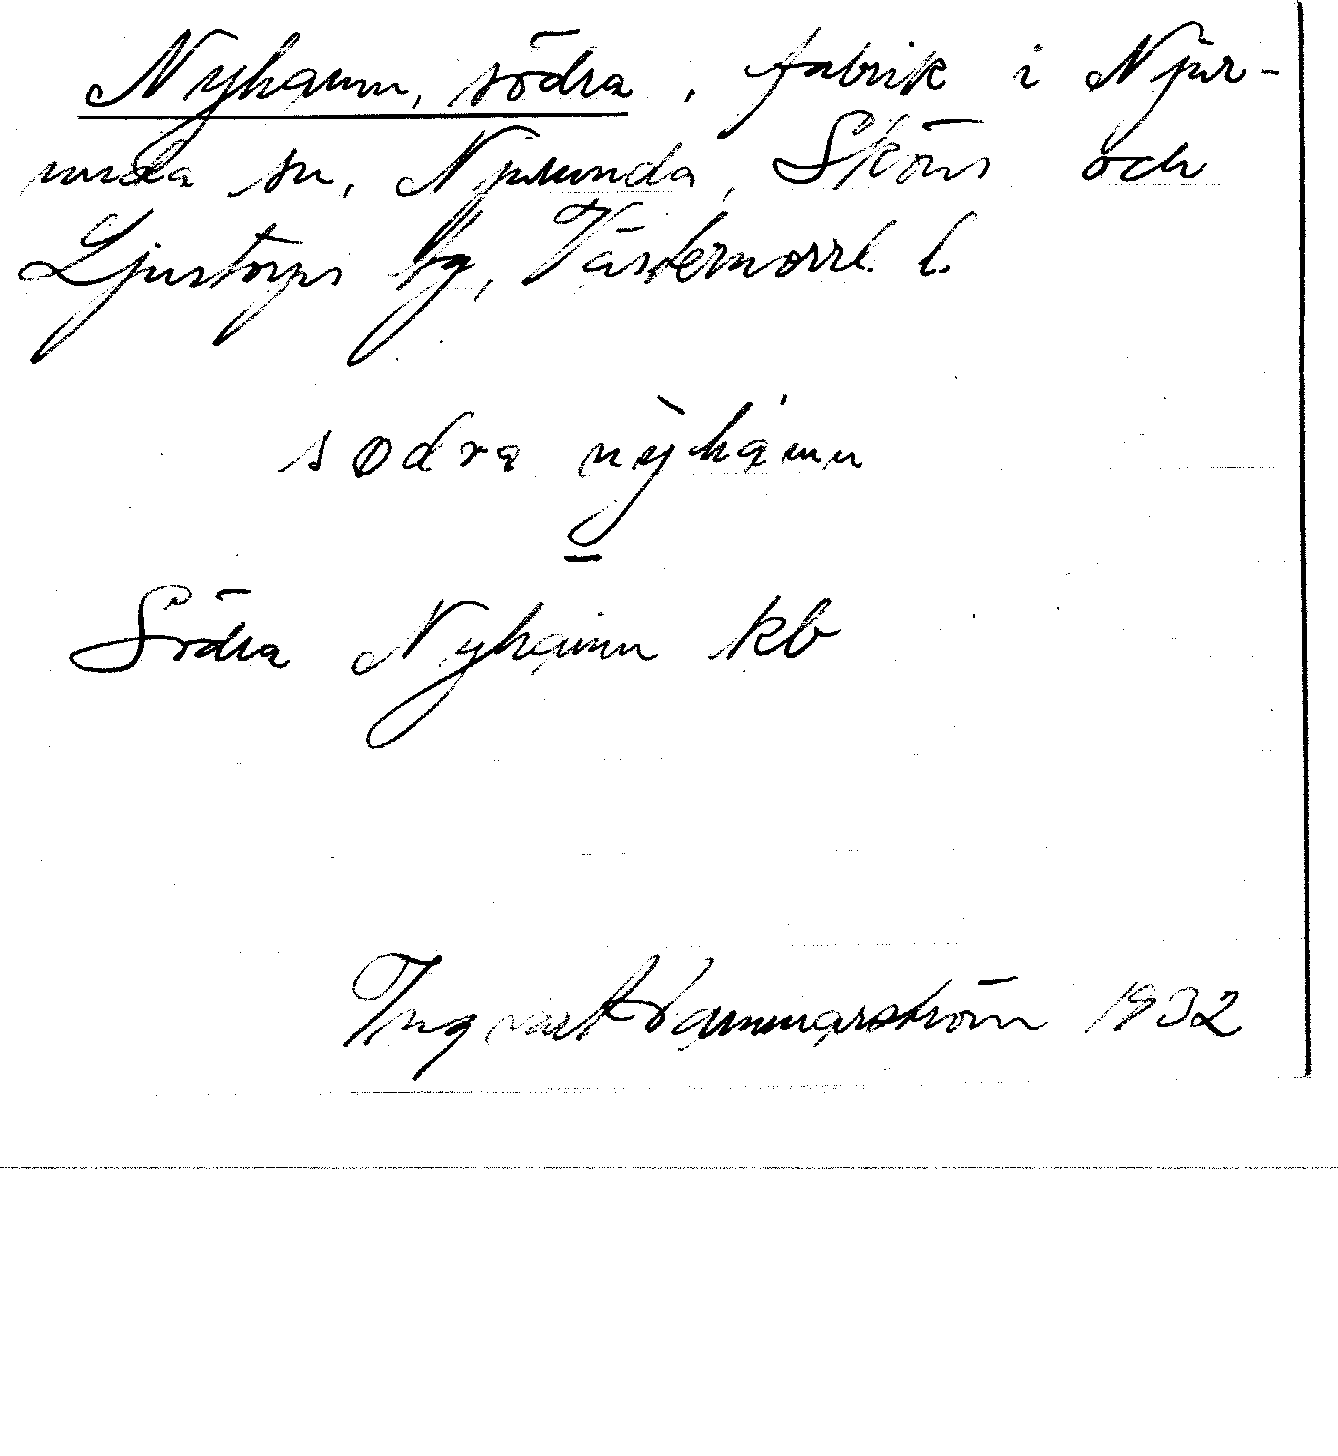 Nyhamn, södra, fabrik i Njur-
unda sn, Njurunda, Sköns och
Ljustorps tg, Västernorrl. l.
södra nỳhámn
Södra Nyhamn kb
Ingvast Hammarström 1932